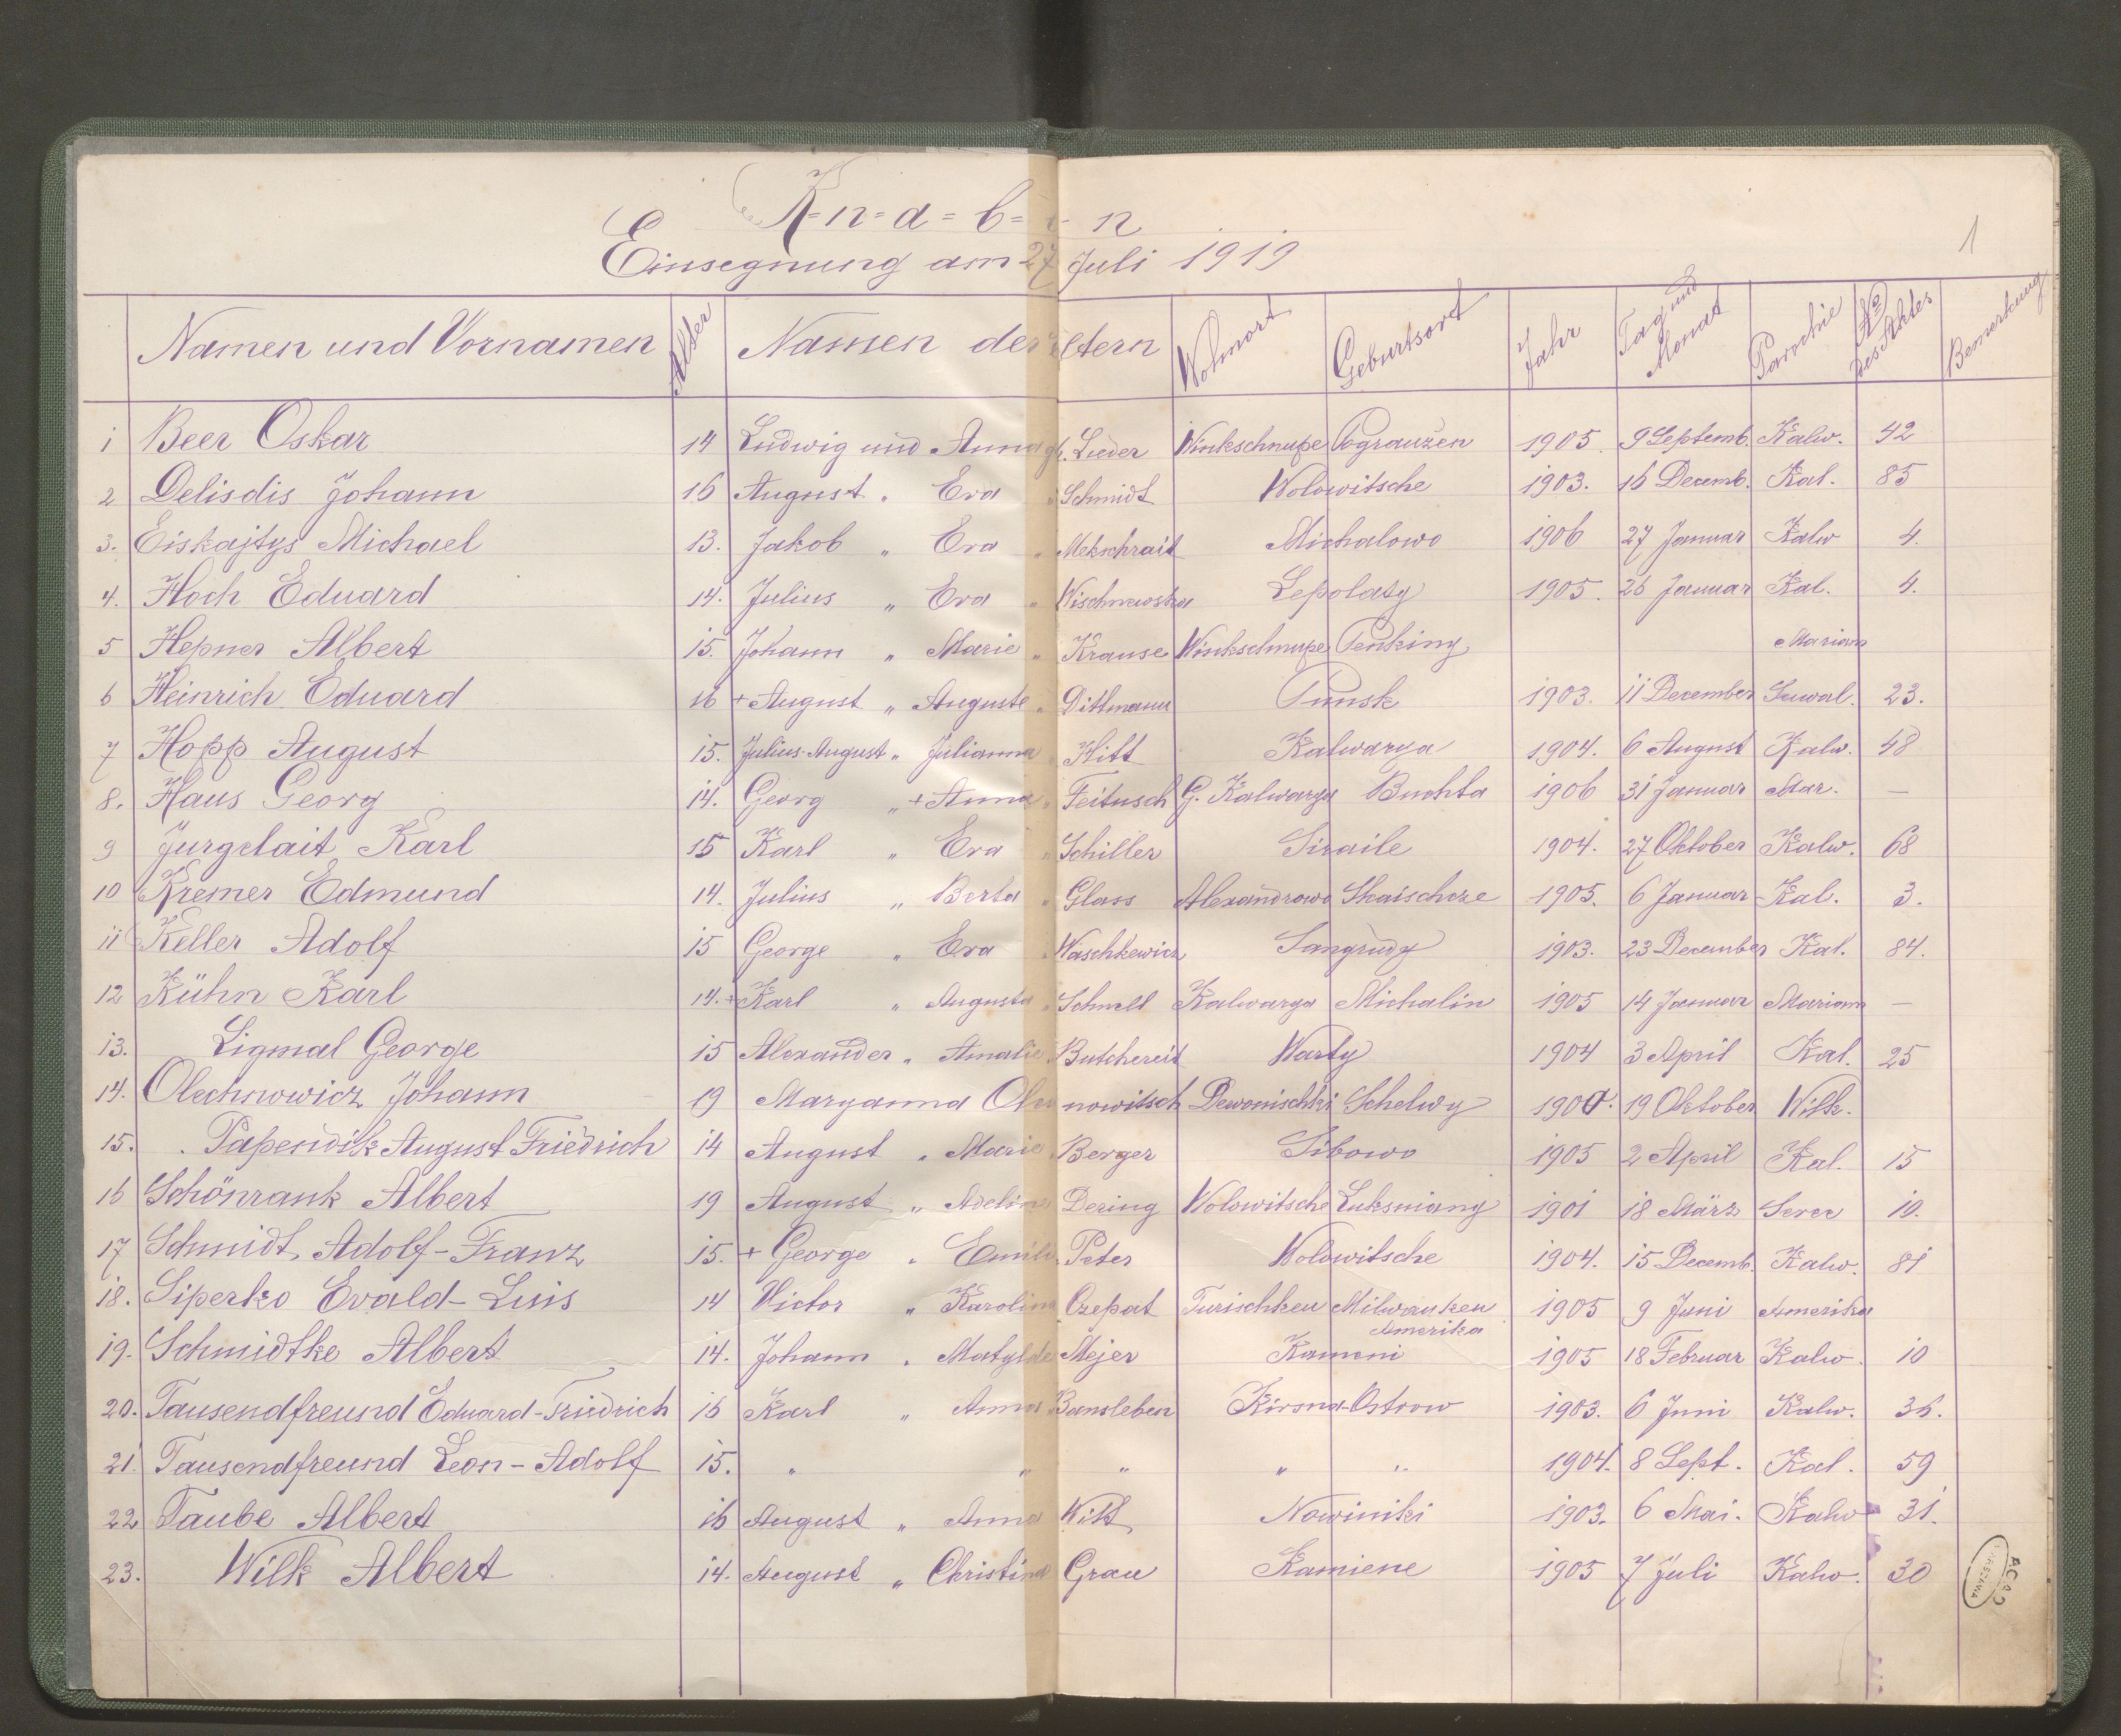 K=n=a=b=e=n
Einsegnung am 27 Juli 1919
1
Namen und Vornamen Alter Namen der Eltern Wohnort Geburtsort Jahr Tag und Monat Parochie No des Aktes Bemerkung
1 Beer Oskar 14 Ludwig und Anna gb. Lieder Winkschnupe Pograuzen 1905. 9 Septemb. Kalw. 42
2 Delisdis Johann 16 August „ Eva „ Schmidt Wolowitsche 1903. 16 Decemb. Kal. 85
3. Eiskajtys Michael 13. Jakob „ Eva „ Mekschrait Michalowo 1906 27 Januar Kalw 4.
4. Hoch Eduard 14. Julius „ Eva „ Wischnewska Lepolaty 1905. 26 Januar Kal. 4.
5 Hepner Albert 15. Johann „ Marie „ Krause Winkschnupe Penking Mariam
6 Heinrich Eduard 16 + August „ Auguste „ Dittmann Punsk 1903. 11 December Suwal. 23.
7 Hopp August 15. Julius-August „ Julianna „ Hitt Kalwarya 1904. 6 August Kalw. 48
8. Haus Georg 14. Georg „ + Anna „ Feitusch G. Kalwarya Buchta 1906 31 Januar Mar. —
9 Jurgelait Karl 15 Karl „ Eva „ Schiller Siraile 1904. 27 Oktober Kalw. 68
10 Kremer Edmund 14. Julius „ Berta „ Glass Alexandrowo Skaischcze 1905. 6 Januar Kal. 3.
11 Keller Adolf 15 George „ Eva „ Waschkewicz Sangrudy 1903. 23 December Kal. 84.
12 Kühn Karl 14. + Karl „ Augusta „ Schmell Kalwarya Michalin 1905 14 Januar Mariam —
13. Ligmal George 15 Alexander „ Amalie Butchereit Warty 1904 3 April Kal. 25
14. Olechnowicz Johann 19 Maryanna Dewonischki Schelwy 1900. 19 Oktober Wilk.
15. Papendik August Friedrich 14 August „ Marie Berger Sibowo 1905 2 April Kal. 15
16 Schönrank Albert 19 August „ Adeline Dering Wolowitsche Luksniany 1901 18 März Seree 10.
17 Schmidt, Adolf-Franz 15. + George „ Emilie Peter Wolowitsche 1904. 15 Decemb. Kalw. 81
18. Siperko Evald-Luis 14 Victor „ Karolina Czepat Turischken Milwauken 1905 9 Juni Amerika
Amerika
19. Schmidtke Albert 14. Johann „ Matylde Mejer Kameni 1905 18 Februar Kalw. 10
20. Tausendfreund Eduard-Friedrich 16 Karl „ Anna Bansleben Kirsna-Ostrow 1903. 6 Juni Kalw. 36.
21. Tausendfreund Leon-Adolf 15. „ „ „ „ „ 1904. 8 Sept. Kal. 59
22 Taube Albert 16 August „ Anna Witt Nowiniki 1903. 6 Mai. Kalw 31.
23. Wilk Albert 14. August „ Christina Grau Kamiene 1905 7 Juli Kalw. 30